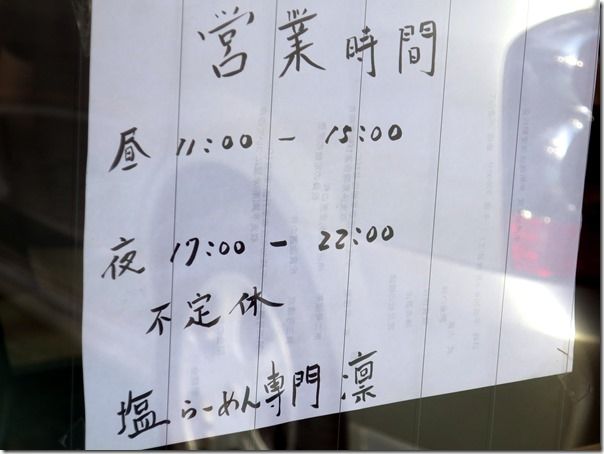 営業時間
昼 11:00 - 15:00
夜 17:00 - 22:00
不定休
塩らーめん専門 凛